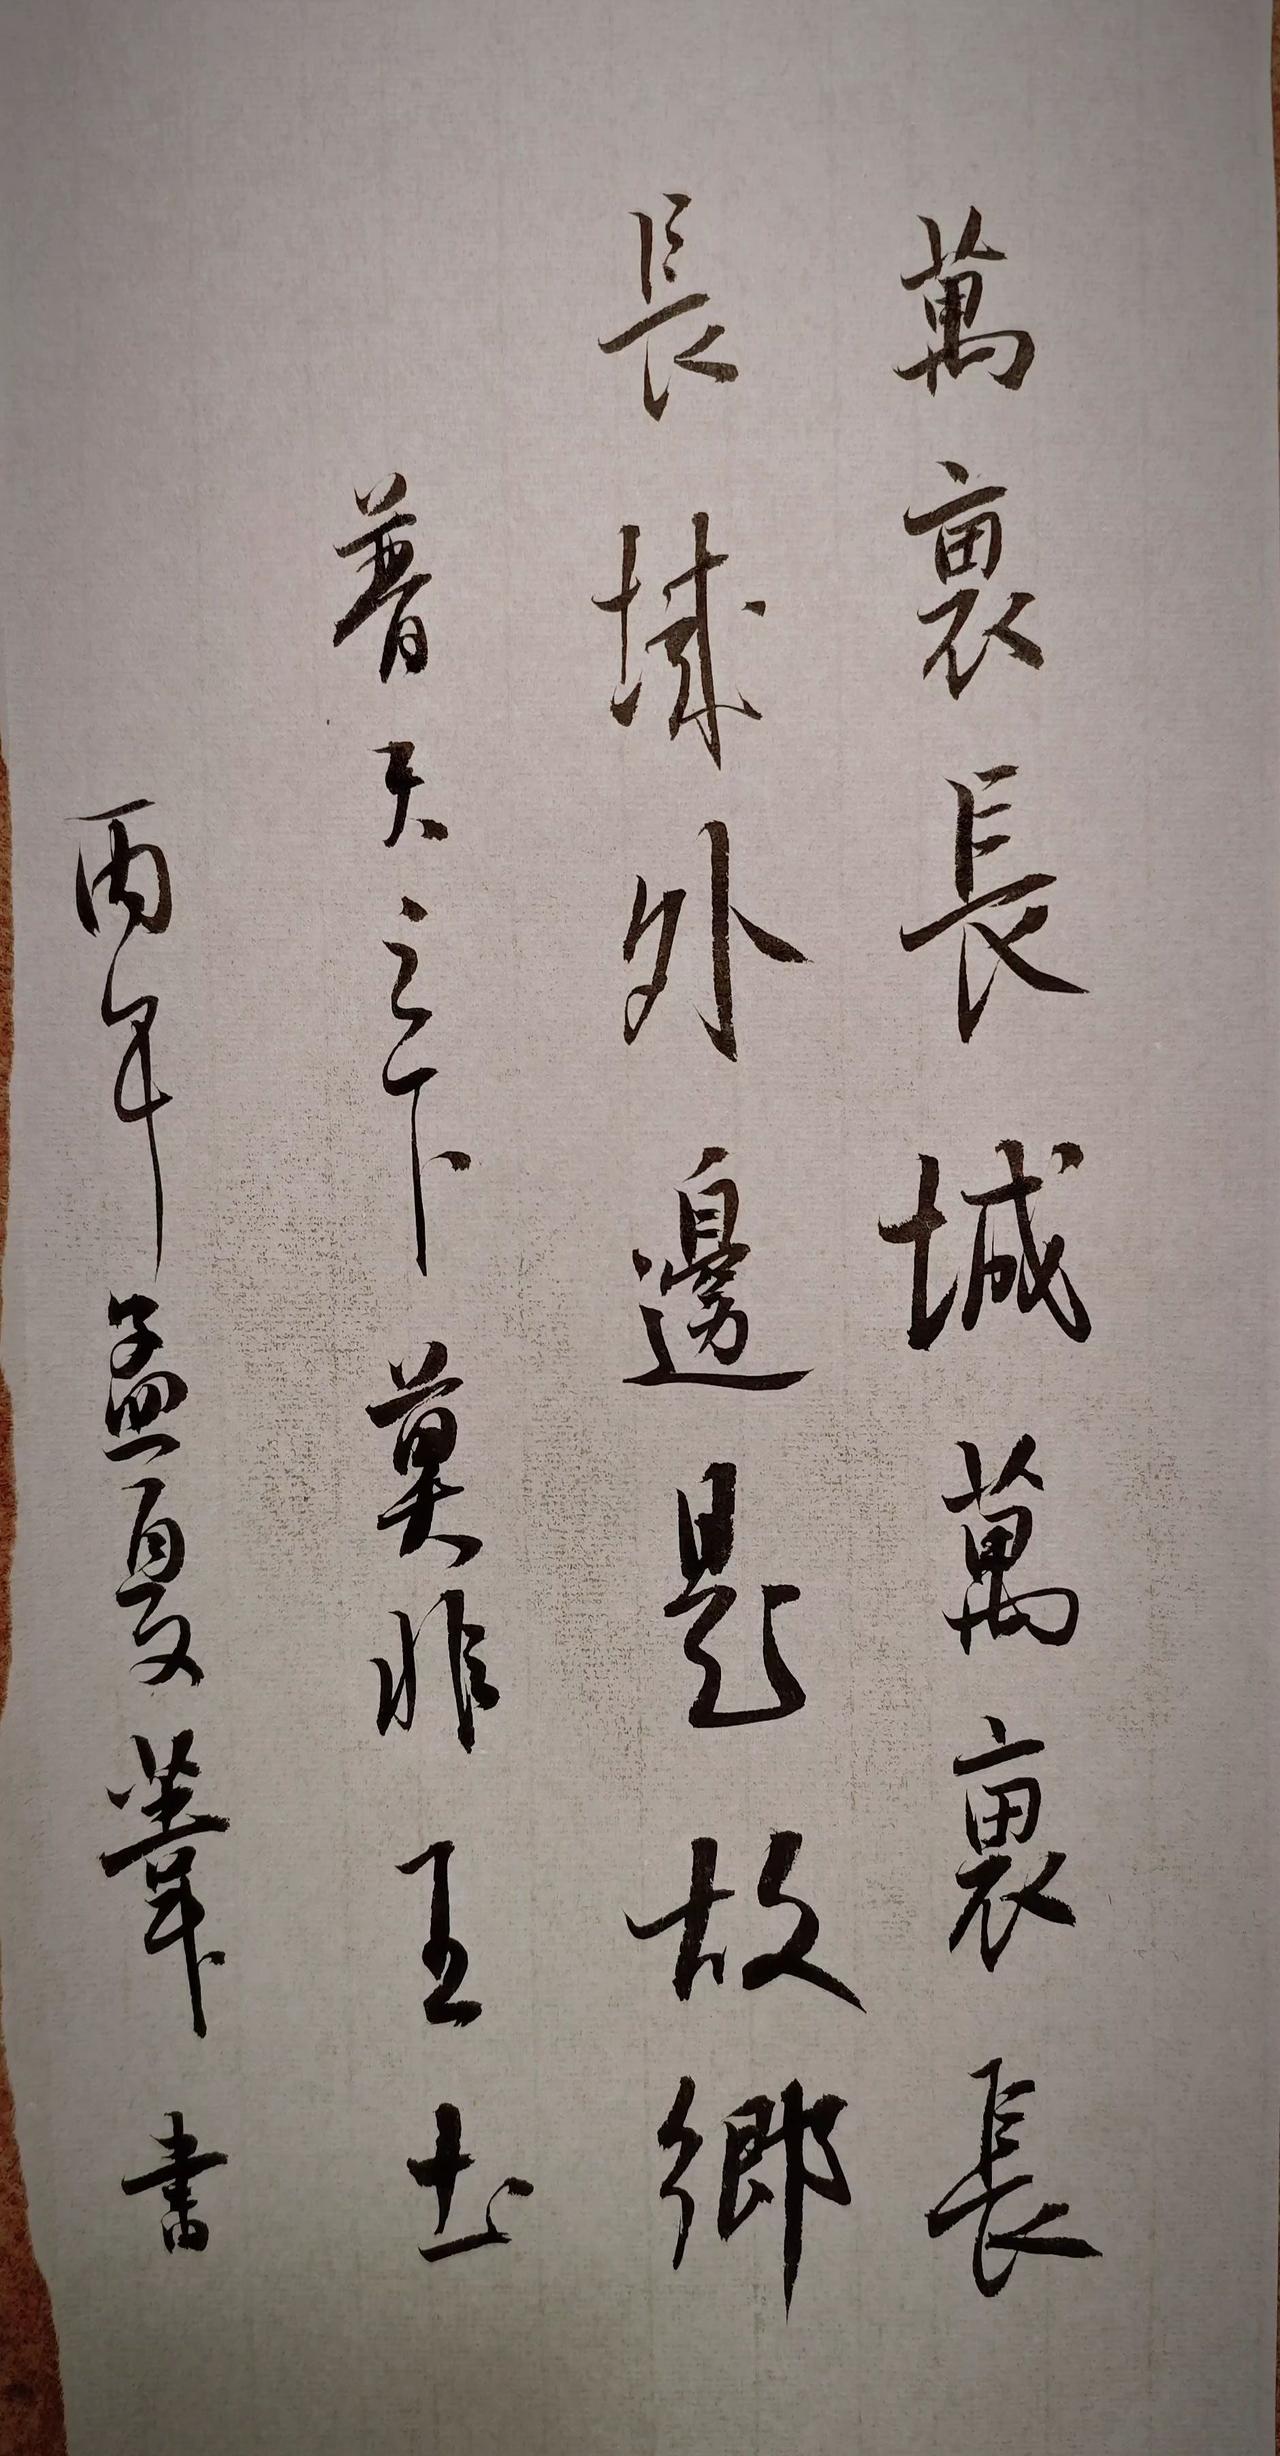 萬裏長城萬裏長
長城外邊是故鄉
普天之下莫非王土
丙午孟夏書